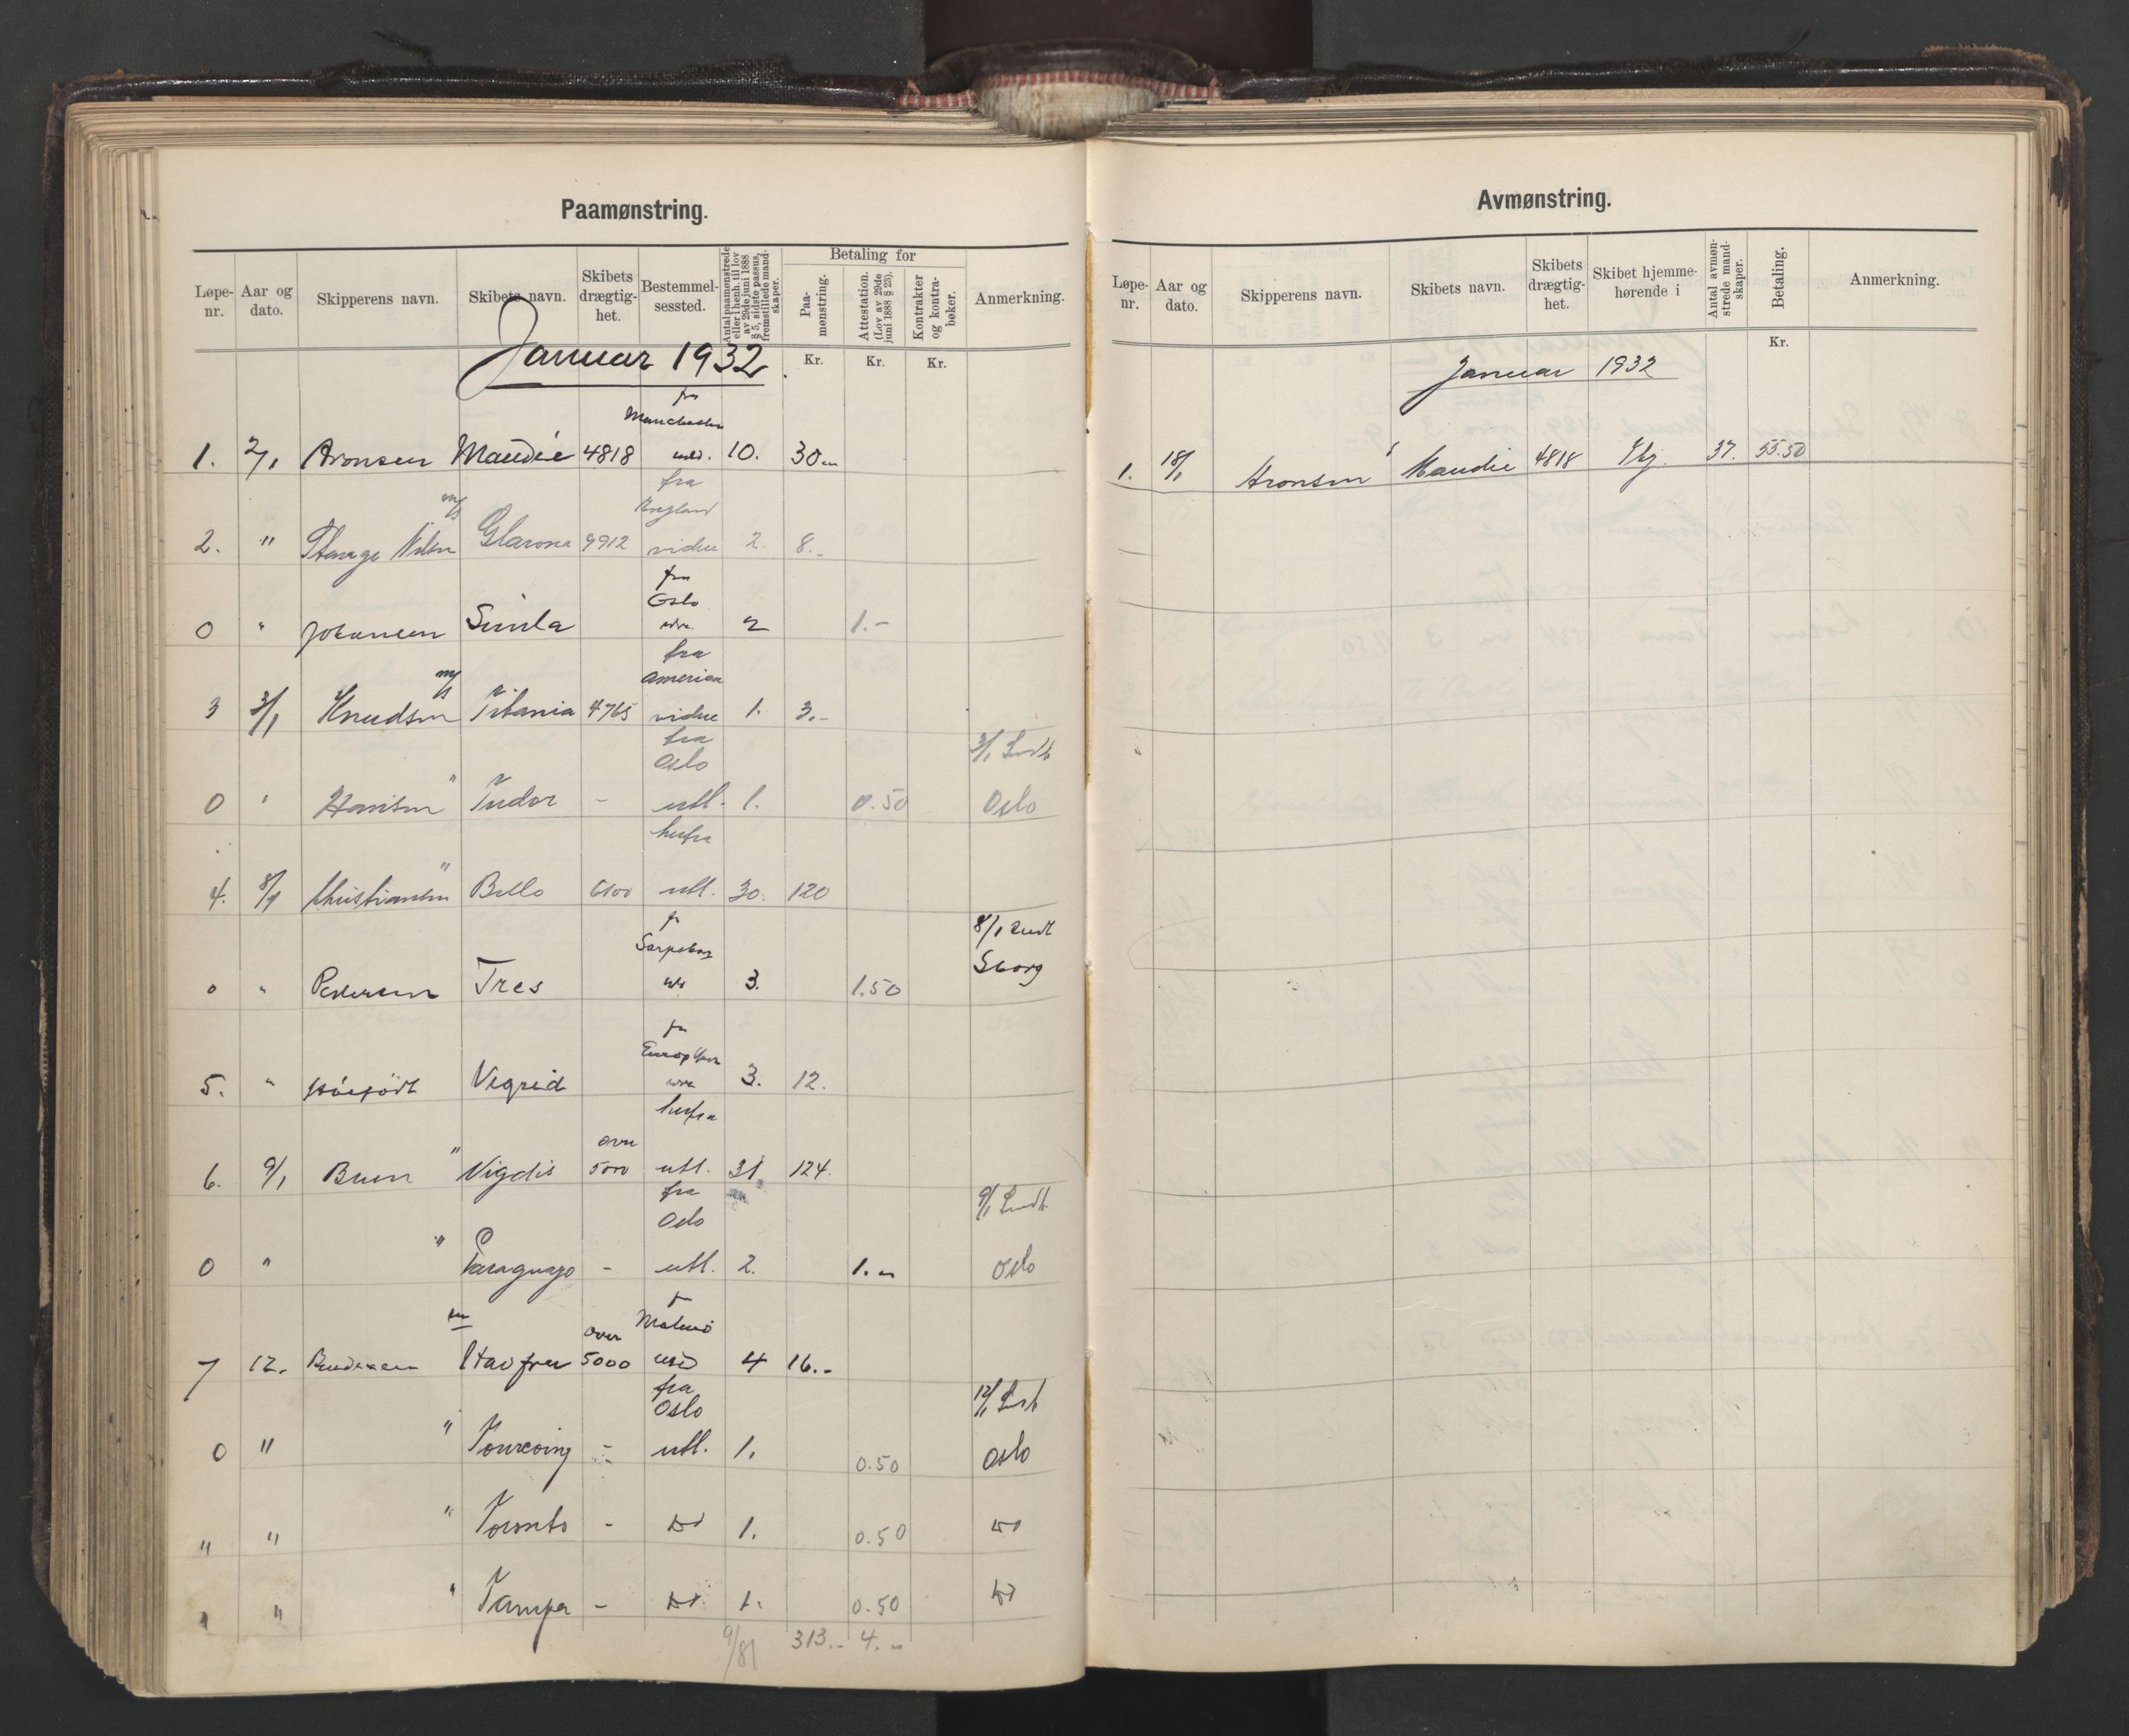 Paamønstring.
Løpe-nr. Aar og dato. Skipperens navn. Skibets navn. Skibets drægtig-het. Bestemmel-sessted. Antal paamønstrede eller i henh. til lov av 29de juni 1888 § 5, sidste passus, fremstillede mand-skaper. Betaling for Paa-mønstring. Attestation. (Lov av 29de juni 1888 § 23). Kontrakter og kontra-bøker. Anmerkning.
Januar 1932. Kr. Kr. Kr.
fra
Manchester
1. 2/1 Aronsen Maudie 4818 10. 30
fra
England
2. " m/s Glarona 9912 vidre 2. 8.-
fra
Oslo
0 " Johansen Simla 2 1.-
fra
America
3 3/1 Knudsen m/s Titania 4765 vidre 1. 3.-
fra
Oslo 3/1
0 " " Tudor - utl. 1. 0.50 Oslo
herfra
4. 8/1 Christiansen " Bello 6100 utl. 30. 120
fr
Sarpsborg 8/1 Sudt
0 " Pedersen Tres 3. 1.50 Sborg
fra
5. " Vigrid 3. 12.
herfra
over
6. 9/1 Bruun " Vigdis 5000 utl. 31 124.
fra
Oslo 9/1
0 " " Paraguay - utl. 2. 1.- Oslo
f
Malmö
over
7 12. Havfru 5000 4 16.-
fra
Oslo 12/1
0 " " Tourcoing - utl. 1. 0.50 Oslo
" " " Toronto - do 1. 0.50 do
" " " Tampa - do 1. 0.50 do
9/81 313.- 4.-
Avmønstring.
Løpe-nr. Aar og dato. Skipperens navn. Skibets navn. Skibets drægtig-het. Skibet hjemme-hørende i Antal avmøn-strede mand-skaper. Betaling. Anmerkning.
Kr.
Januar 1932
1. 18/1 Aronsen Maudie 4818 Tbg. 37. 55.50